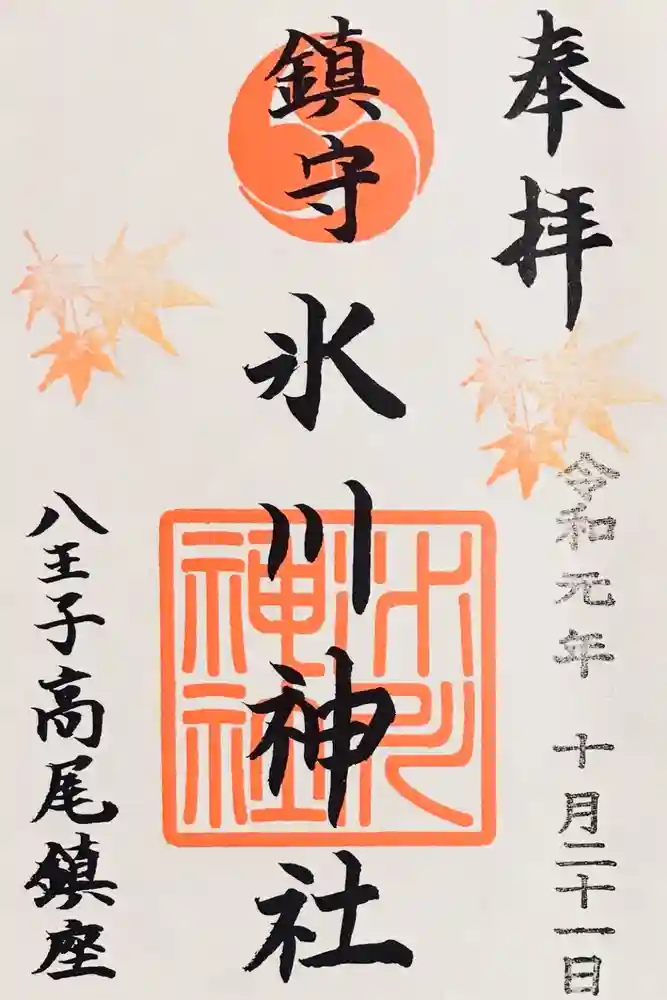 奉拝
令和元年 十月二十一日
鎮守氷川神社
氷川神社
八王子高尾鎮座